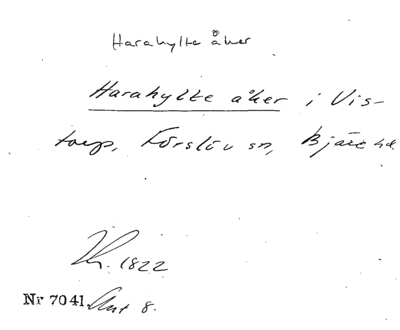 Harahylte åker
Harahylte åker i Vis-
torp, Förslöv sn, Bjäre hd.
1822
Nr 7041 Akt 8.